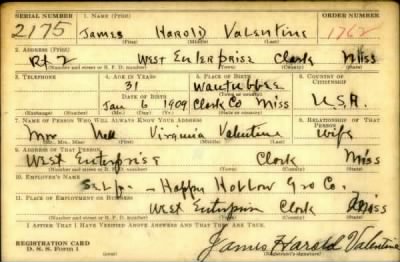 SERIAL NUMBER 1. NAME (Print) ORDER NUMBER
2175 James Harold Valentine 1762
(First) (Middle) (Last)
2. ADDRESS (Print)
Rt 2 West Enterprise Clark Miss
(Number and street or R. F. D. number) (Town) (County) (State)
3. TELEPHONE 4. AGE IN YEARS 5. PLACE OF BIRTH 6. COUNTRY OF CITIZENSHIP
31 Wautubbee
DATE OF BIRTH (Town or county)
Jan 6 1909 Clark Co Miss U.S.A.
(Exchange) (Number) (Mo.) (Day) (Yr.) (State or country)
7. NAME OF PERSON WHO WILL ALWAYS KNOW YOUR ADDRESS 8. RELATIONSHIP OF THAT PERSON
Mrs Virginia Valentine wife
(Mr., Mrs., Miss) (First) (Middle) (Last)
9. ADDRESS OF THAT PERSON
West Enterprise Clark Miss
(Number and street or R. F. D. number) (Town) (County) (State)
10. EMPLOYER'S NAME
Self - Happy Hollow Gro Co.
11. PLACE OF EMPLOYMENT OR BUSINESS
West Enterprise Clark Miss
(Number and street or R. F. D. number) (Town) (County) (State)
I AFFIRM THAT I HAVE VERIFIED ABOVE ANSWERS AND THAT THEY ARE TRUE.
REGISTRATION CARD
D. S. S. Form 1
James Harold Valentine
(Registrant's signature)